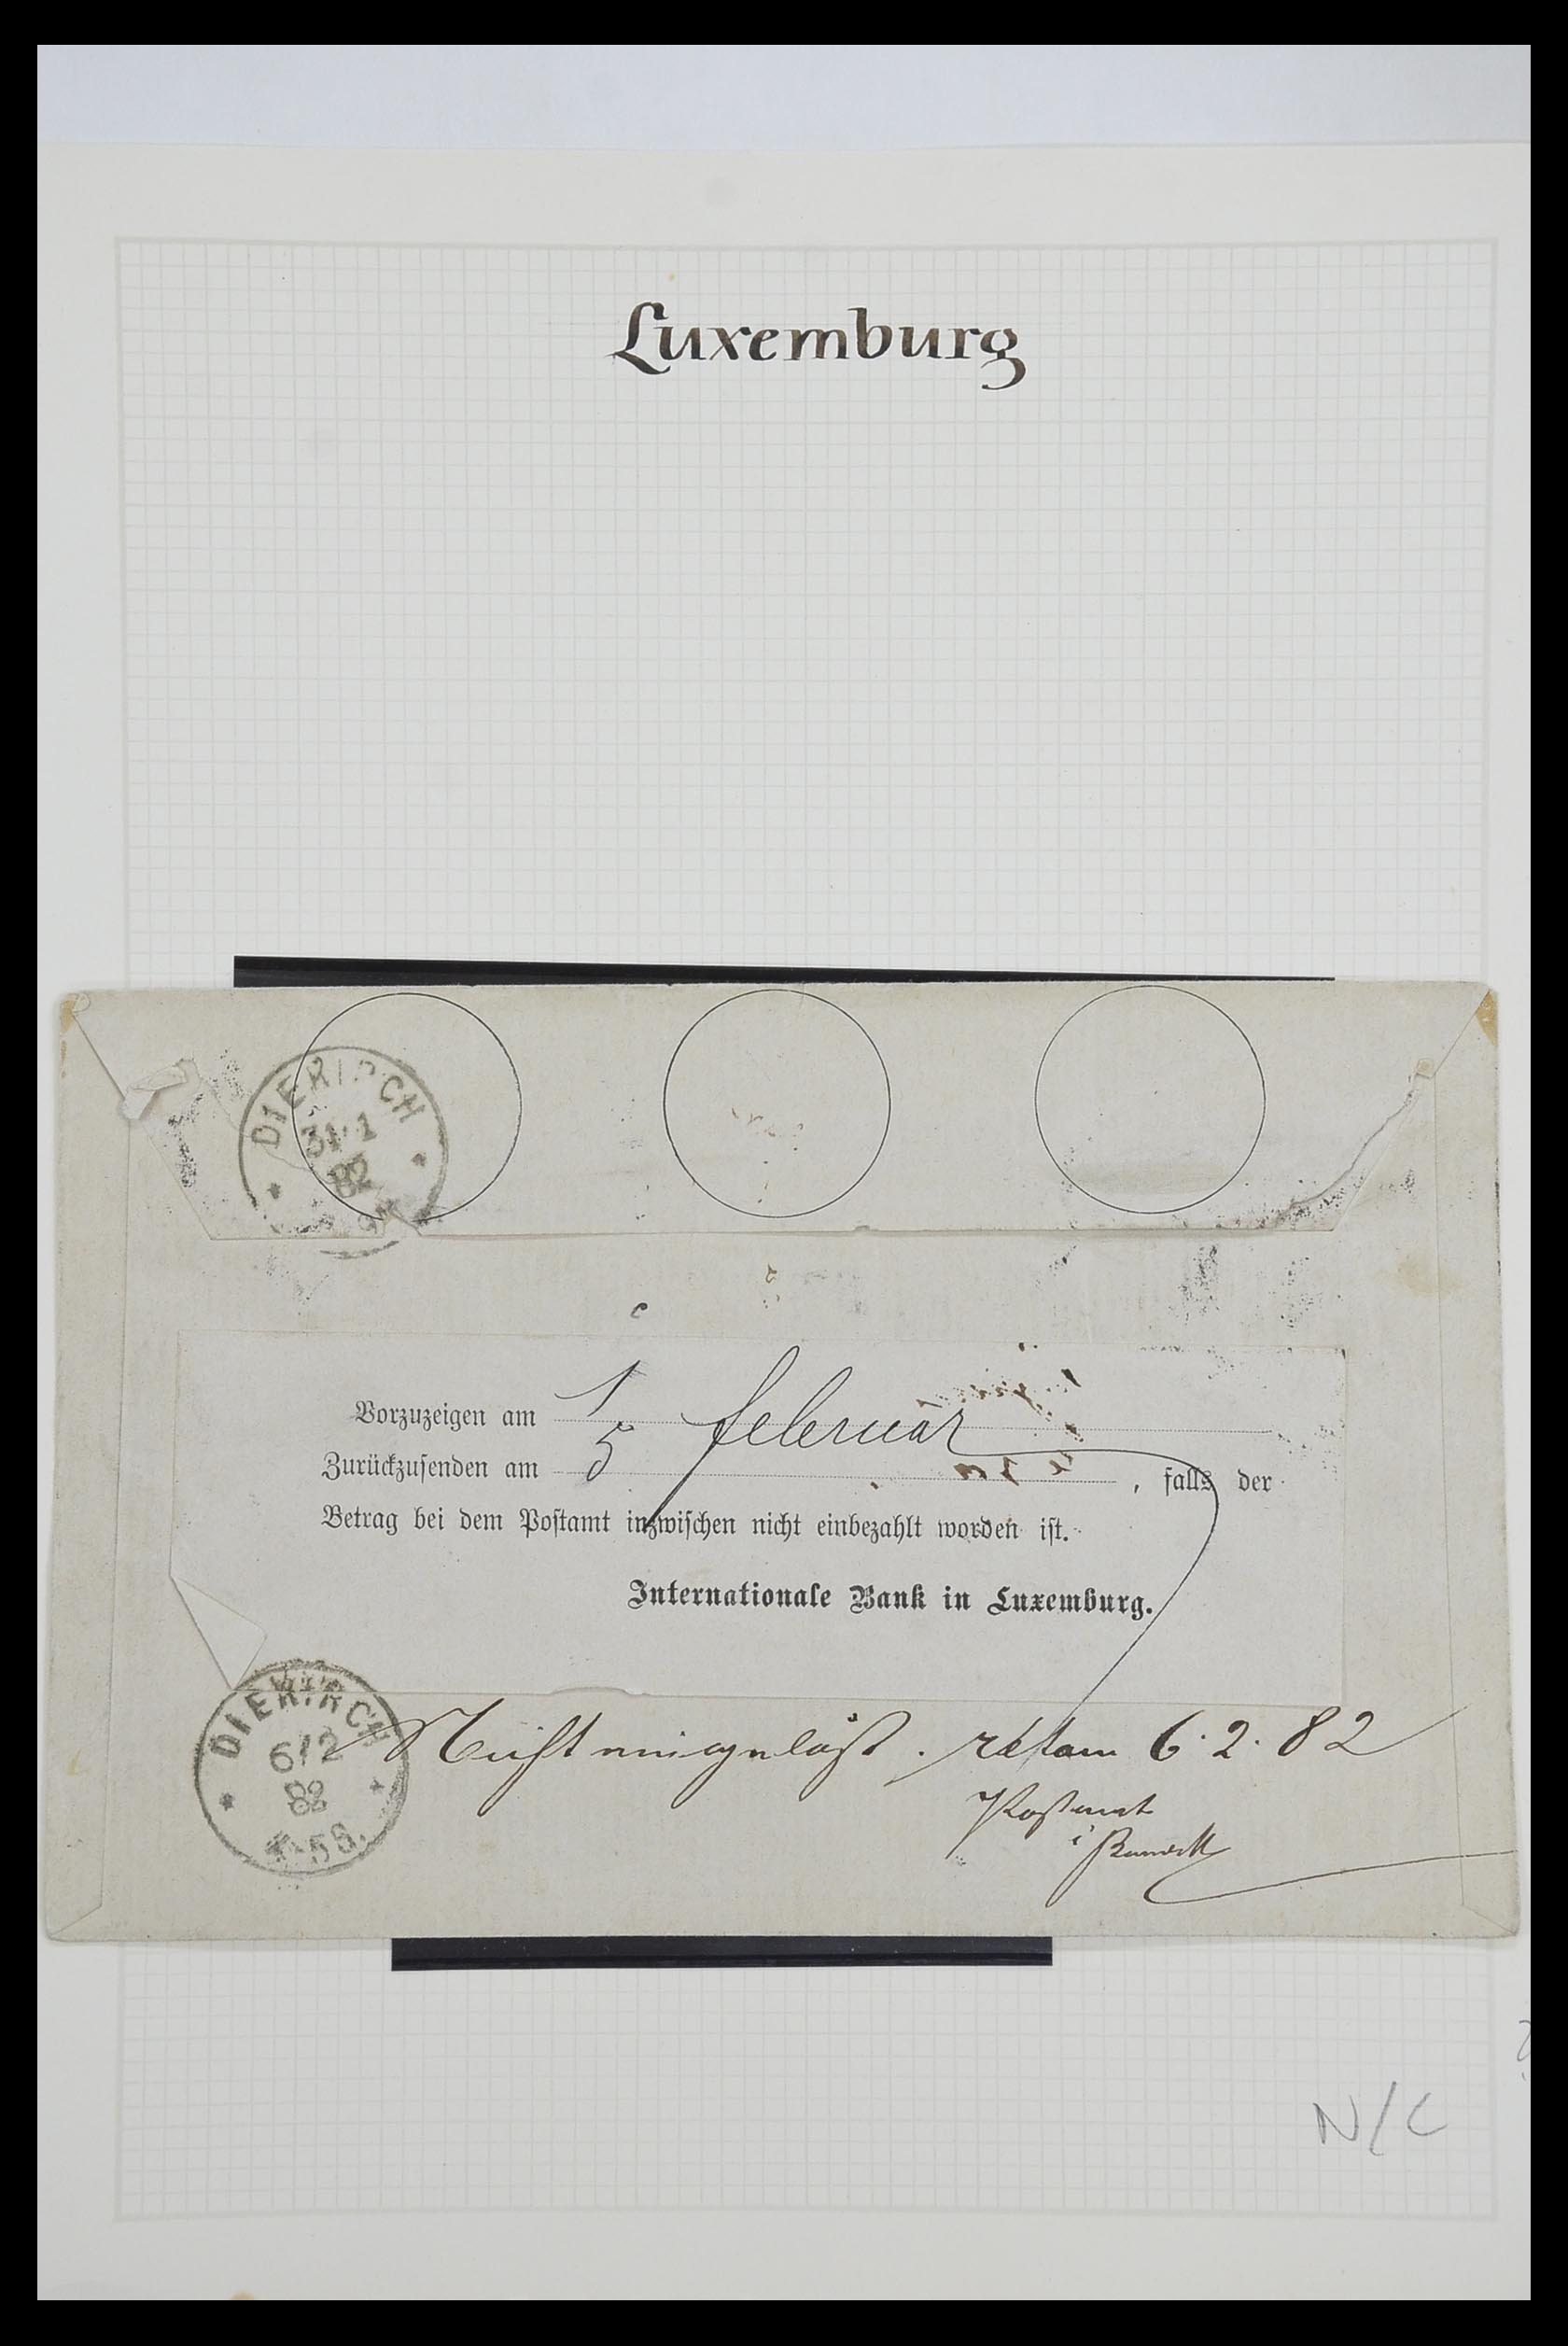 Luxemburg
DIEKIRCH
31·1
82
c
Vorzuzeigen am 1
5 februar
Zurückzusenden am , falls der
Betrag bei dem Postamt inzwischen nicht einbezahlt worden ist.
Internationale Bank in Luxemburg.
DIEKIRCH
6/2
82
Nicht eingelöst. retour 6·2·82
Postamt
N/C